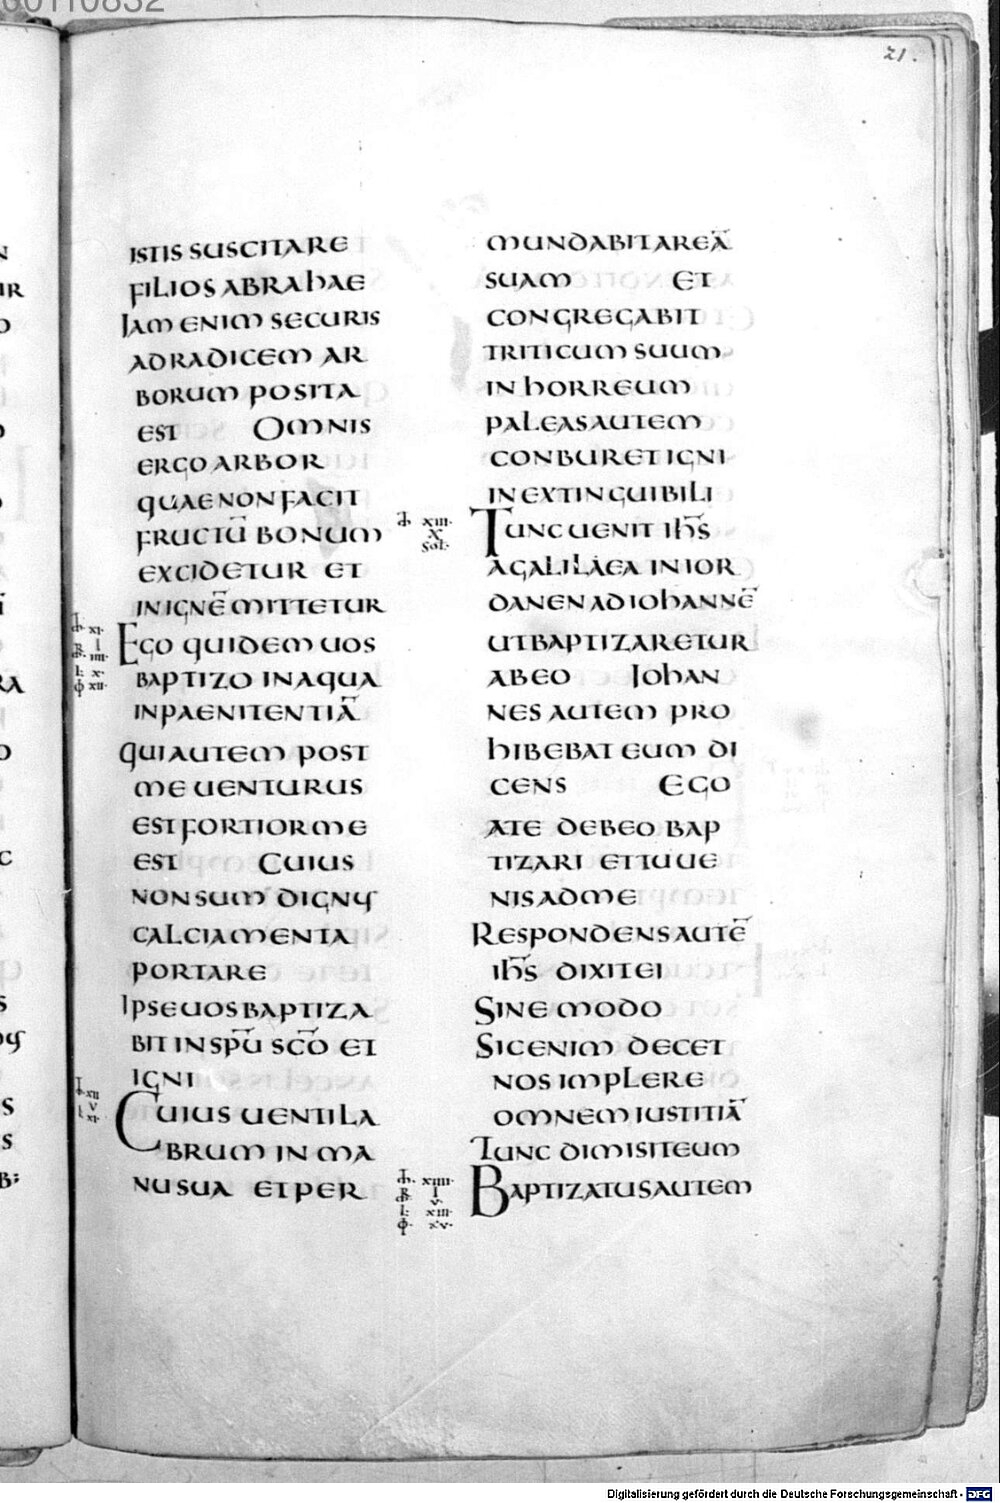 21.
ISTIS SUSCITARE
FILIOS ABRAhAE
IAM ENIM SECURIS
AD RADICEM AR
BORUM POSITA
EST OMNIS
ERGO ARBOR
QUAE NON FACIT
FRUCTŪ BONUM
EXCIDETUR ET
IN IGNĒ MITTETUR
EGO QUIDEM UOS
BAPTIZO IN AQUA
IN PAENITENTIĀ
QUI AUTEM POST
ME UENTURUS
EST FORTIOR ME
EST CUIUS
NON SUM DIGNUS
CALCIAMENTA
PORTARE
IPSE UOS BAPTIZA
BIT IN SPŪ SCŌ ET
IGNI
CUIUS UENTILA
BRUM IN MA
NU SUA ET PER
MUNDABIT AREĀ
SUAM ET
CONGREGABIT
TRITICUM SUUM
IN hORREUM
PALEAS AUTEM
CONBURET IGNI
INEXTINGUIBILI
XIII
X
Sol
TUNC UENIT IhS̄
A GALILAEA IN IOR
DANEN AD IOhANNĒ
UT BAPTIZARETUR
AB EO IOhAN
NES AUTEM PRO
hIBEBAT EUM DI
CENS EGO
A TE DEBEO BAP
TIZARI ET TU UE
NIS AD ME
RESPONDENS AUTĒ
IhS̄ DIXIT EI
SINE MODO
SIC ENIM DECET
NOS IMPLERE
OMNEM IUSTITIĀ
TUNC DIMISIT EUM
BAPTIZATUS AUTEM
Digitalisierung gefördert durch die Deutsche Forschungsgemeinschaft - DFG